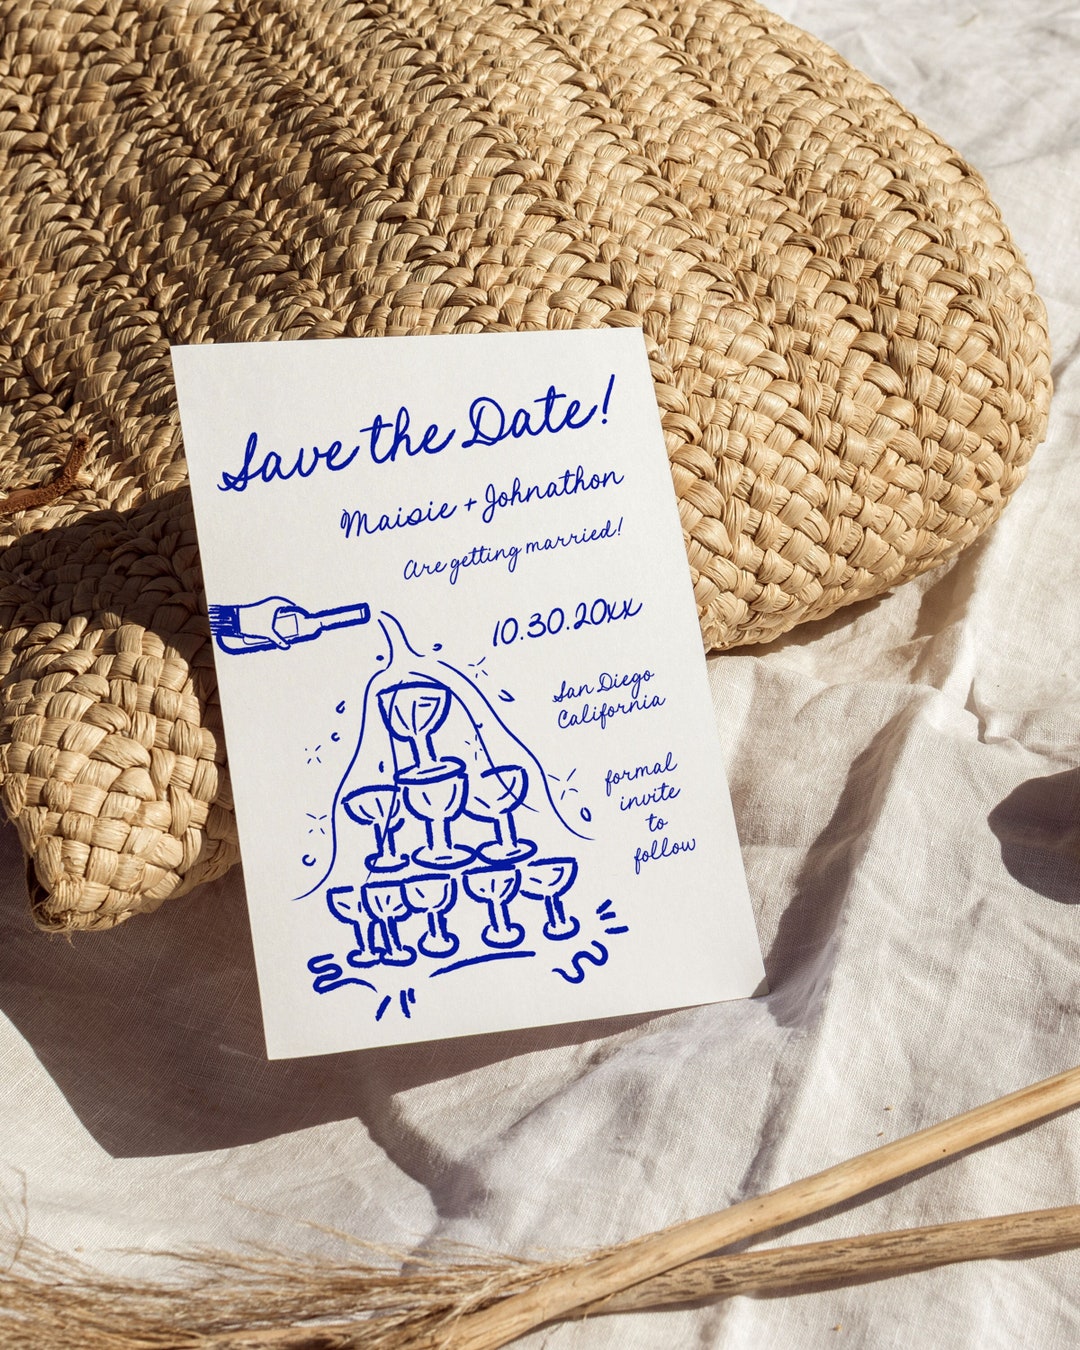 Save the Date!
Maisie + Johnathon
Are getting married!
10.30.20xx
San Diego
California
formal
invite
to
follow